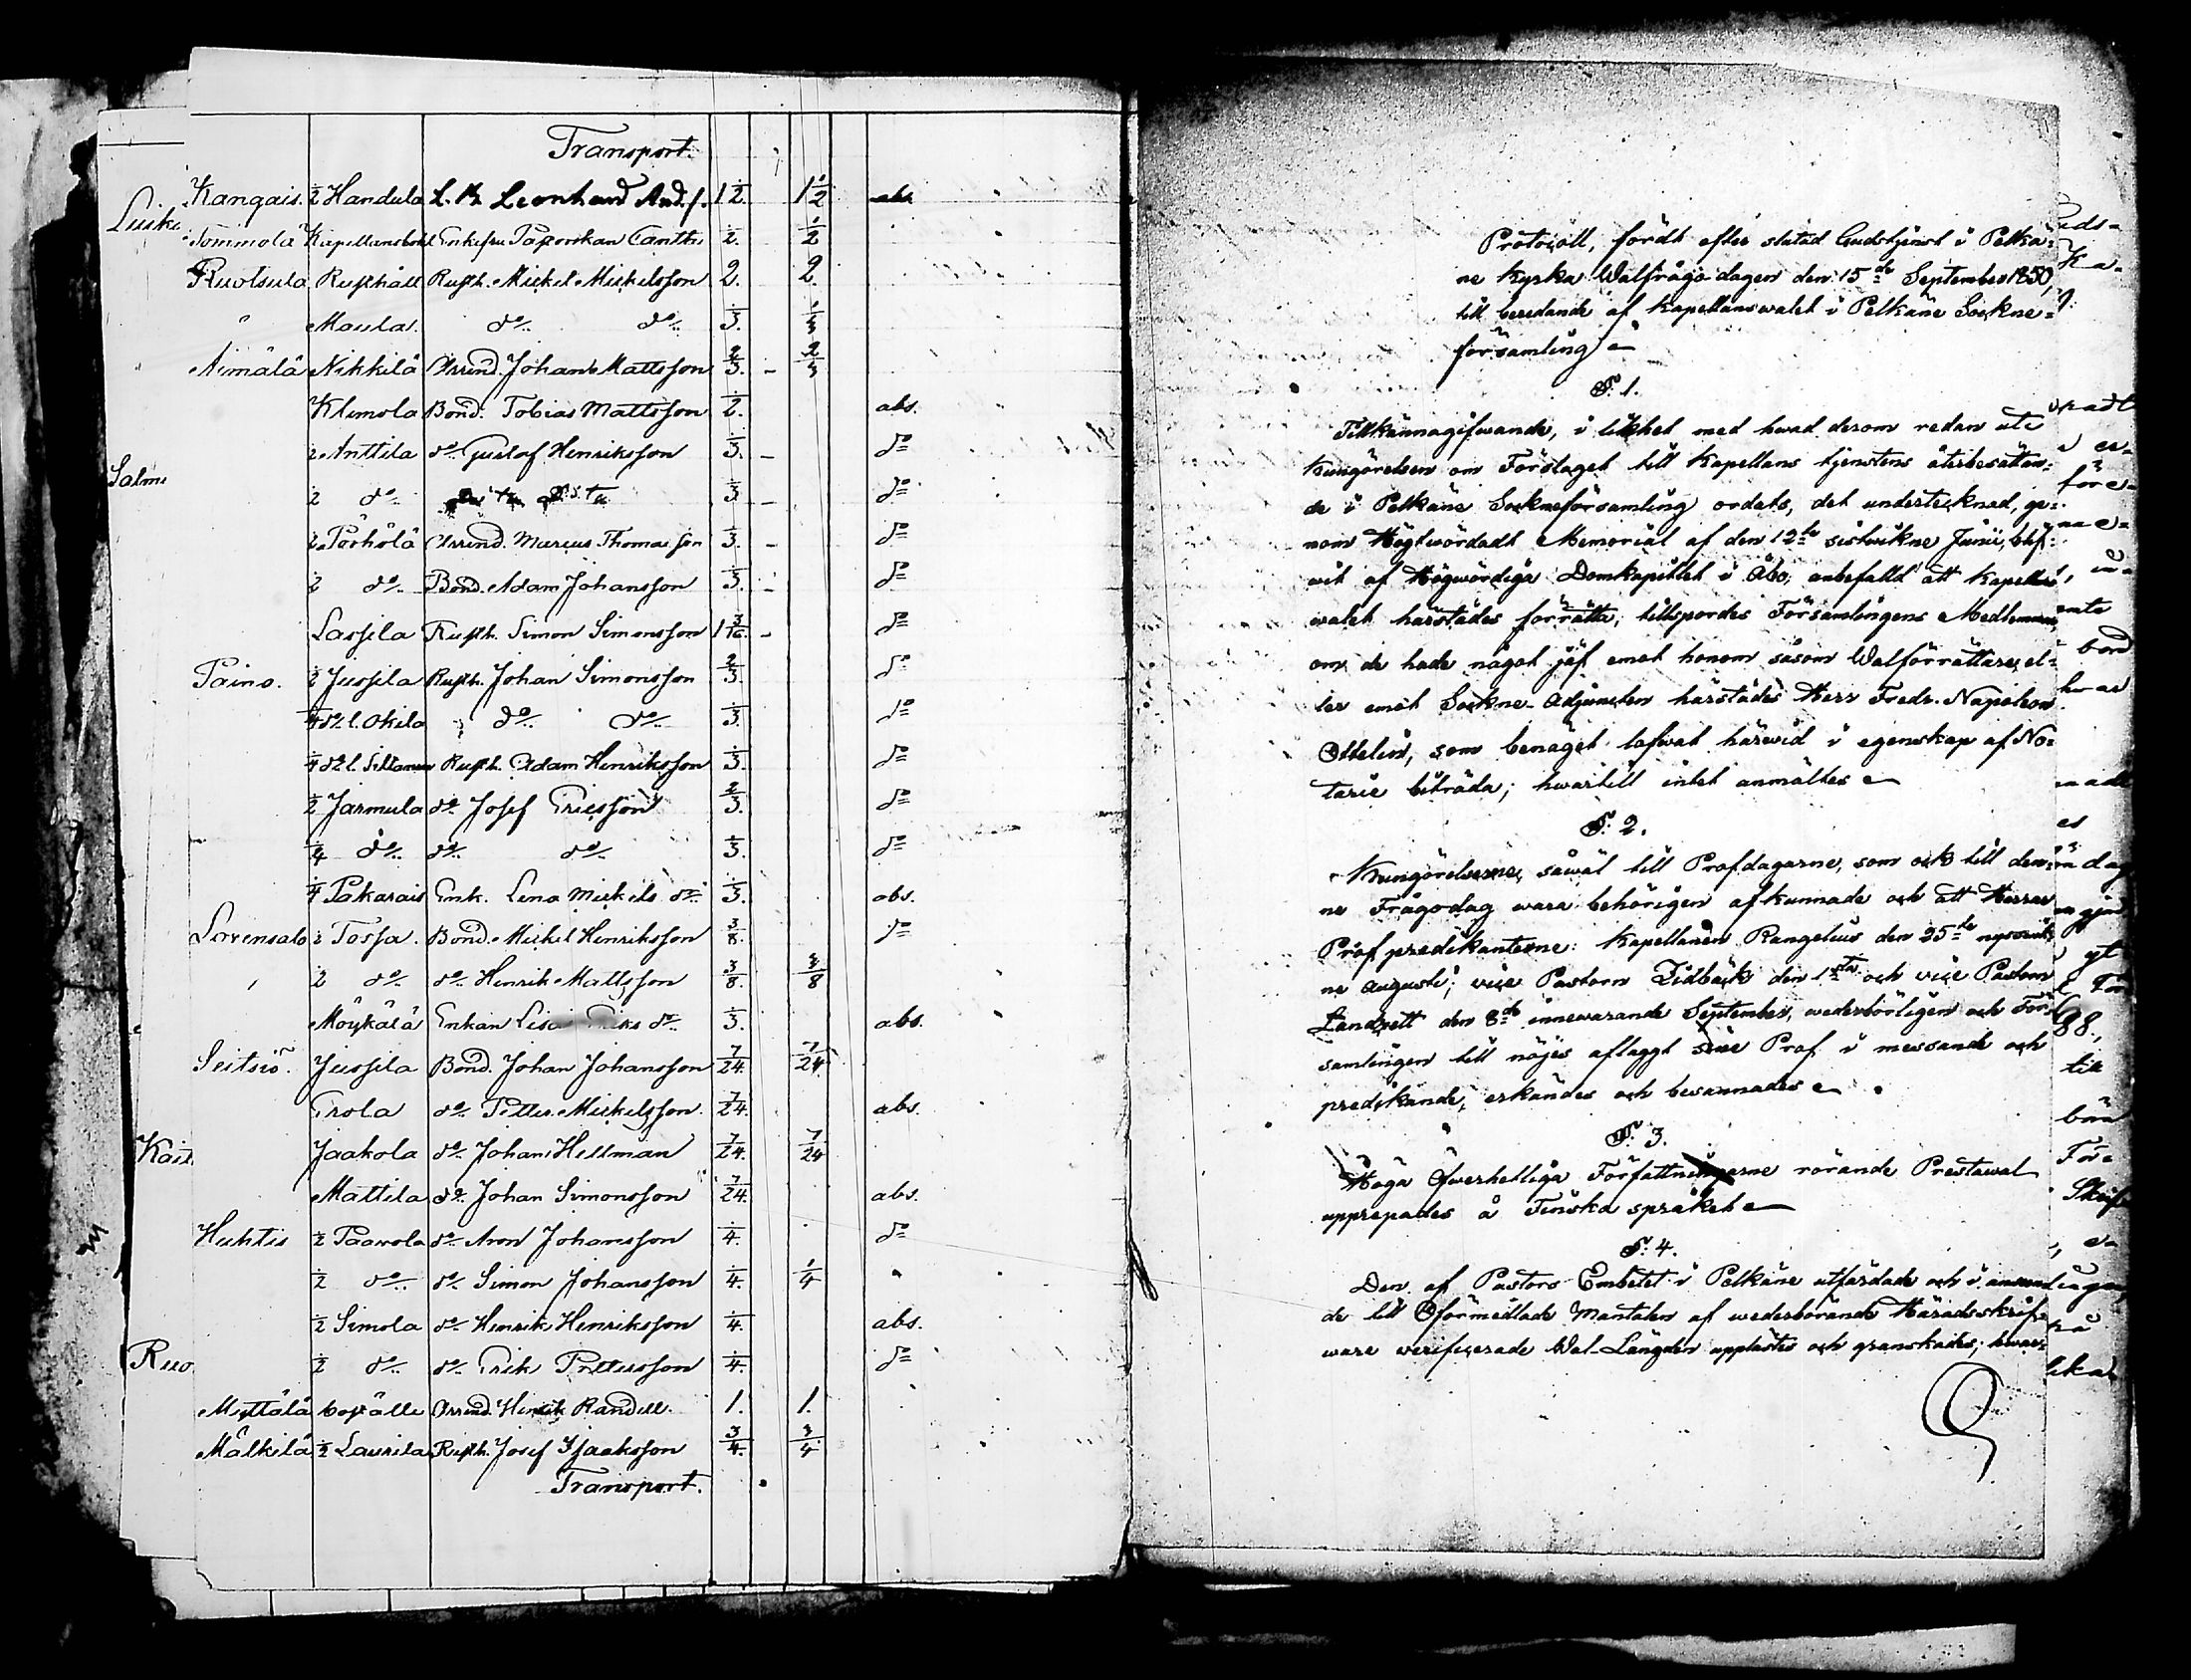 Transport.
Kangais. ½ Handula L. B. Leonhard And.s. 1½. 1½ abs.
Tommola Kapellansbohl Enkefru Paporskan Canth ½. ½
Ruotsula Rusthåll Rusth. Mickel Mickelsson 2. 2.
" Maula do do ⅓. ⅓
Aimälä Nikkilä Arrend. Johan Mattsson ⅔. – ⅔
Klemola Bond. Tobias Mattsson ½. abs.
½ Anttila do Gustaf Henriksson ⅓. – do
½ do ⅓ – do
½ Pörhölä Arrend. Marcus Thomasson ⅓. – do
½ do Bond. Adam Johansson ⅓. – do
Lassila Rusth. Simon Simonsson 1 3/16. – do
Paino. ½ Jussila Rusth. Johan Simonsson ⅔. do
¼ do l. Okila do do ⅓. do
¼ do l. Rusth. Adam Henriksson ⅓. do
½ Jarmula do Josef Ericsson ⅔. do
¼ do do do ⅓. do
¼ Pakarais Enk. Lena Mickels dr ⅓. abs.
Sorvensalo ½ Tossa. Bond. Mickel Henriksson 3/8. do
" ½ do do Henrik Mattsson 3/8. 3/8
Möykälä Enkan Lisa Eriks dr ⅓. abs.
Seitsiö. Jussila Bond. Johan Johansson 7/24. 7/24.
Erola do Petter Mickelsson. 7/24. abs.
Jaakola do Johan Hellman 7/24. 7/24
Mattila do Johan Simonsson 7/24. abs.
Huhtis ½ Paavola do Aron Johansson ¼. do
½ do do Simon Johansson ¼. ¼
½ Simola do Henrik Henriksson ¼. abs.
½ do do Erik Pettersson ¼. do
Myttälä boställe Arrend. Henrik Randell. 1. 1.
Mälkilä ½ Laurila Rusth. Josef Isaaksson ¾. ¾
Transport.
Luike
Salme
Kait
Ruo.
Protocoll, fördt efter slutad Gudstjenst i Pelkä-
ne Kyrka Walfrågodagen den 15de September 1850,
till beredande af Kapellanswalet i Pelkäne Sockne-
församling
§. 1.
Tillkännagifwande, i likhet med hwad derom redan uti
Kungörelsen om Förslaget till Kapellans tjenstens återbesättan-
de i Pelkäne Sockneförsamling ordats, det undertecknad, ge-
nom Högtwördadt Memorial af den 12te sistwikne Junii, blif-
wit af Högwördiga Domkapitlet i Åbo, anbefalld att Kapellans
walet härstädes förrätta; tillspordes Församlingens Medlemmar
om de hade något jäf emot honom såsom Walförrättare, el-
ler emot Sockne-Adjuncten härstädes Herr Fredr. Napoleon
Ottelin, som benäget lofwat härwid i egenskap af No-
tarie biträda; hwartill intet anmältes
§. 2.
Kungörelserne, såwäl till Profdagarne, som ock till den-
ne Frågodag wara behörigen afkunnade och att Herrar
Profpredikanterne: Kapellanen Rangelius den 25te nyssvik-
ne Augusti; vice Pastorn Lidbäck den 1sta och vice Pastorn
Landzett den 8de innewarande September, wederbörligen och För-
samlingen till nöjes aflaggt sine Prof i messande och
predikande, erkändes och besannades
§. 3.
Höga Öfwerhetliga Författningarne rörande Prestawal
upprepades å Finska språket
§. 4.
Den af Pastors Embetet i Pelkäne utfärdade och i anseen
de till Oförmedlade Mantalen af wederbörande Häradsskrif-
ware verificerade Wal-Längden upplästes och granskades; hwar-